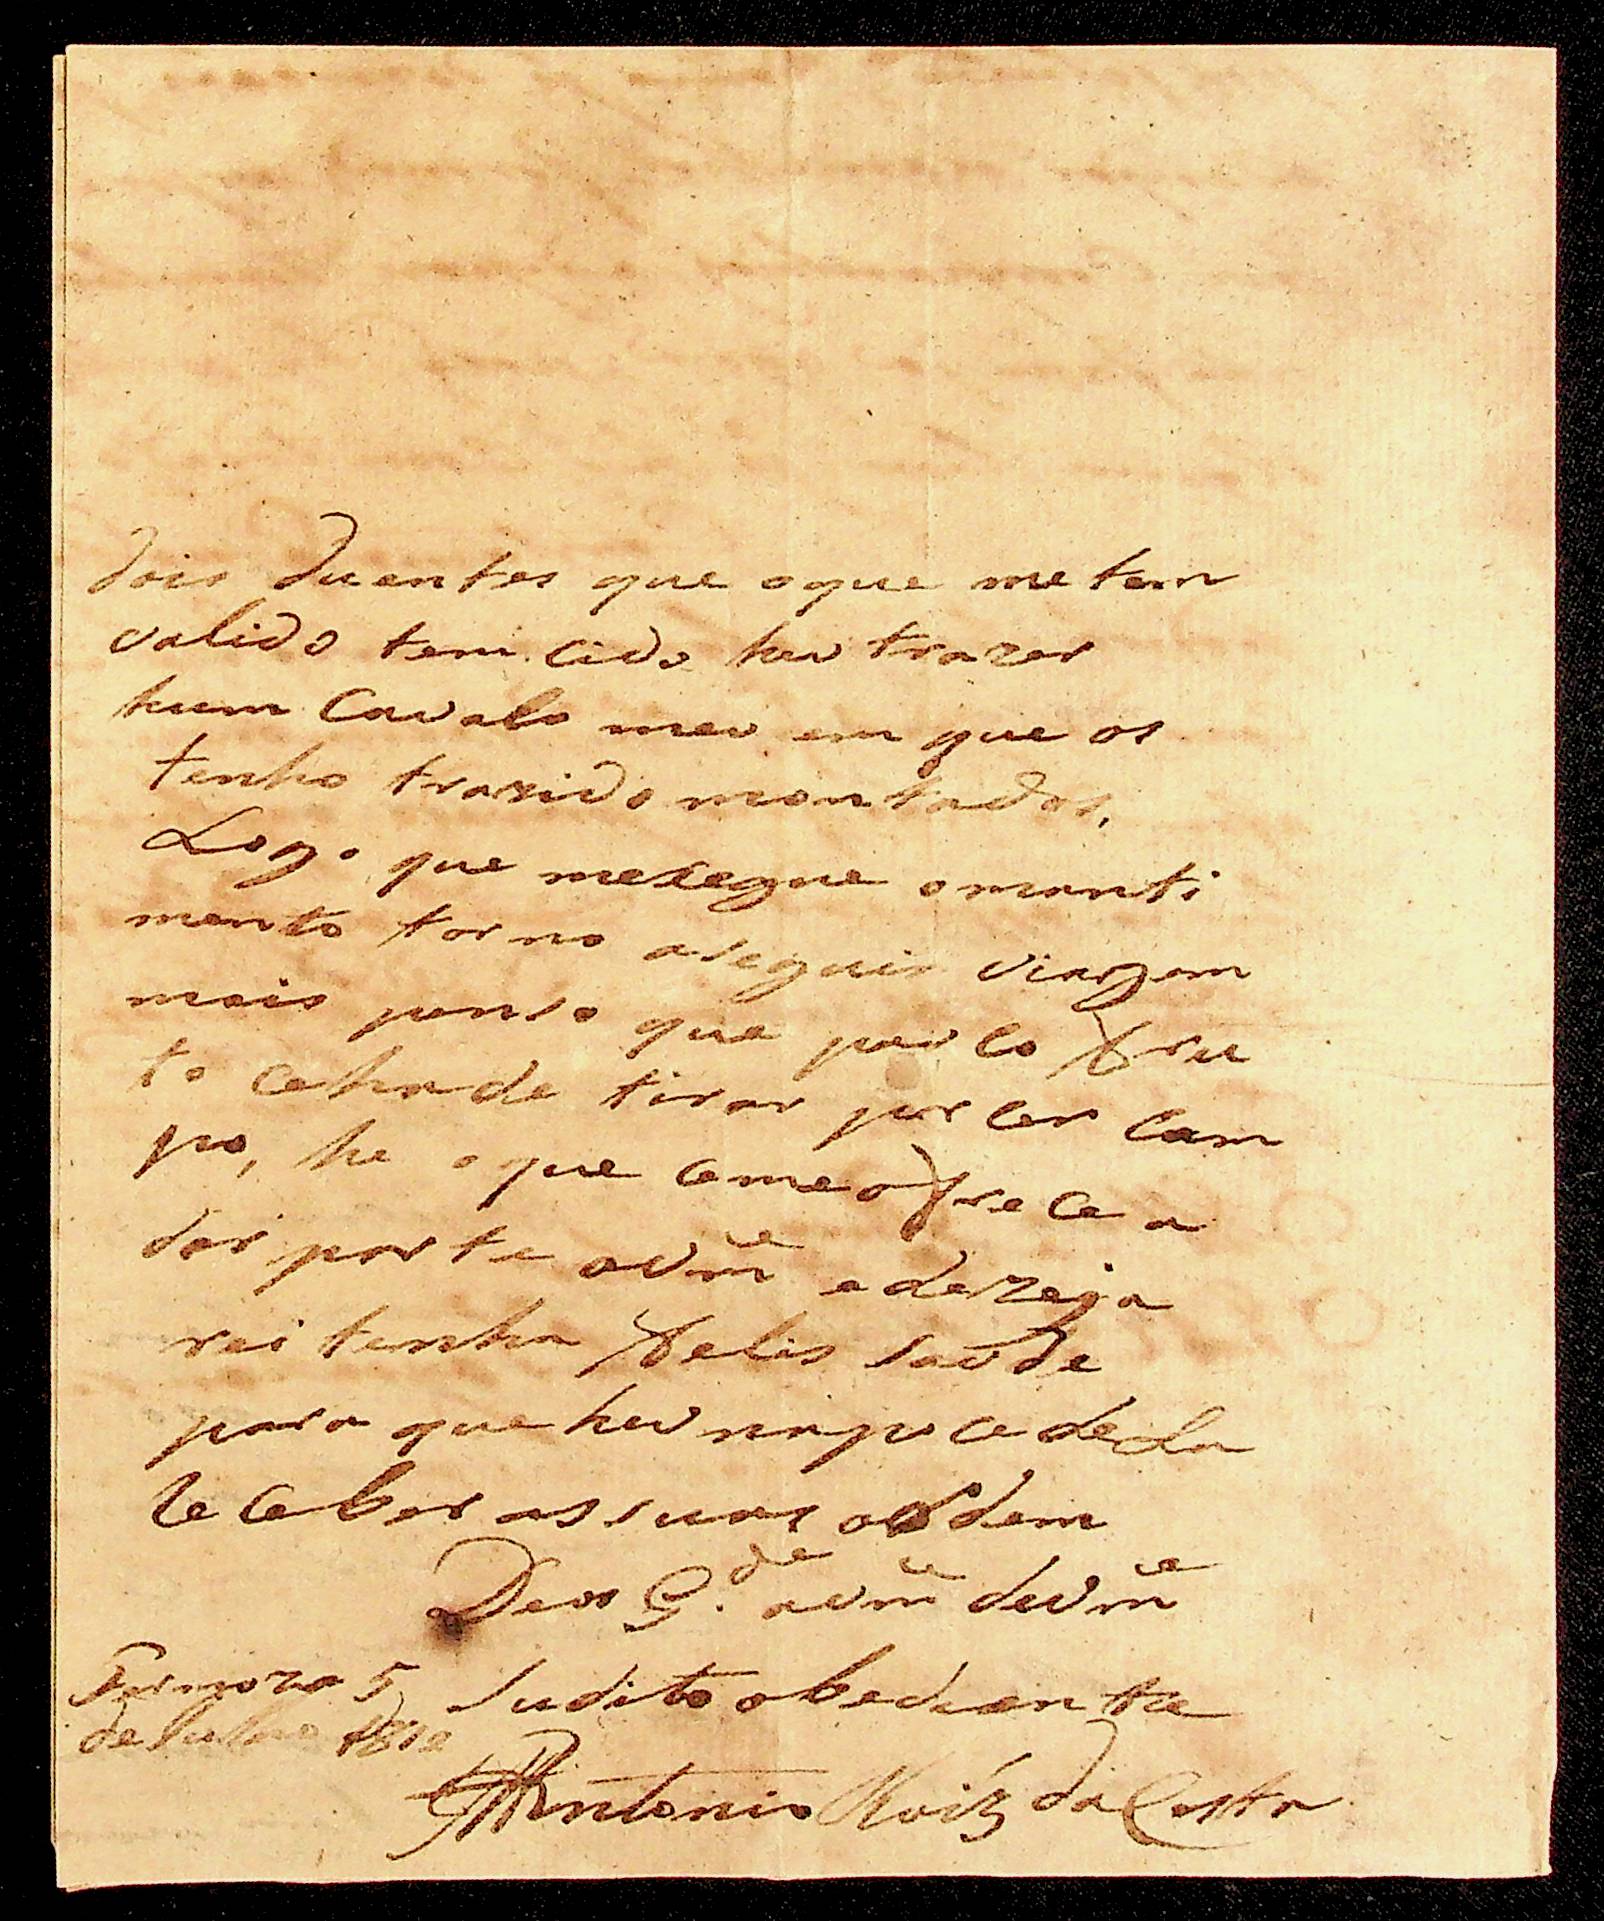 dois duentes que oque me tem
valido tem cido heu trazer
hum Cavalo meu em que os
tenho trazido montados,
Logo que mexegue omanti
mento torno aseguir viagem
mais penso que pouco fru
to cehade tirar por cer cam
po, he oque ceme ofrece a
dar parte avm.ce edezeja
rei tenha felis saude
para que heu napocedela
receber assuas ordem
Deos G.de avm.ce devm.ce
Sudito obediente
Formoza 5
de Julho
Antonio Roiz da Costa